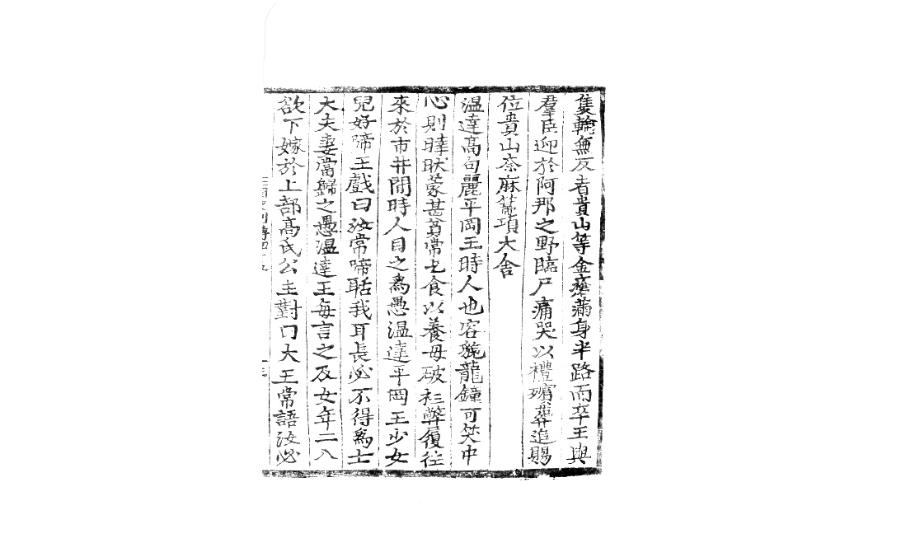 隻輪無反者貴山等金瘡滿身半路而卒王與
羣臣迎於阿那之野臨尸痛哭以禮殯葬追賜
位貴山奈麻箒項大舍
温達高句麗平岡王時人也容貌龍鐘可笑中
心則睟然家甚貧常乞食以養母破衫弊履往
來於市井間時人目之爲愚温達平岡王少女
兒好啼王戲曰汝常啼聒我耳長必不得爲士
大夫妻當歸之愚温達王每言之及女年二八
欲下嫁於上部高氏公主對曰大王常語汝必